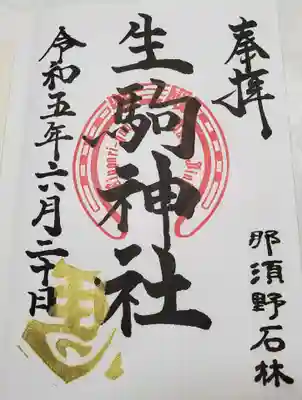 奉拝
那須野石林
生駒神社
令和五年六月二十日